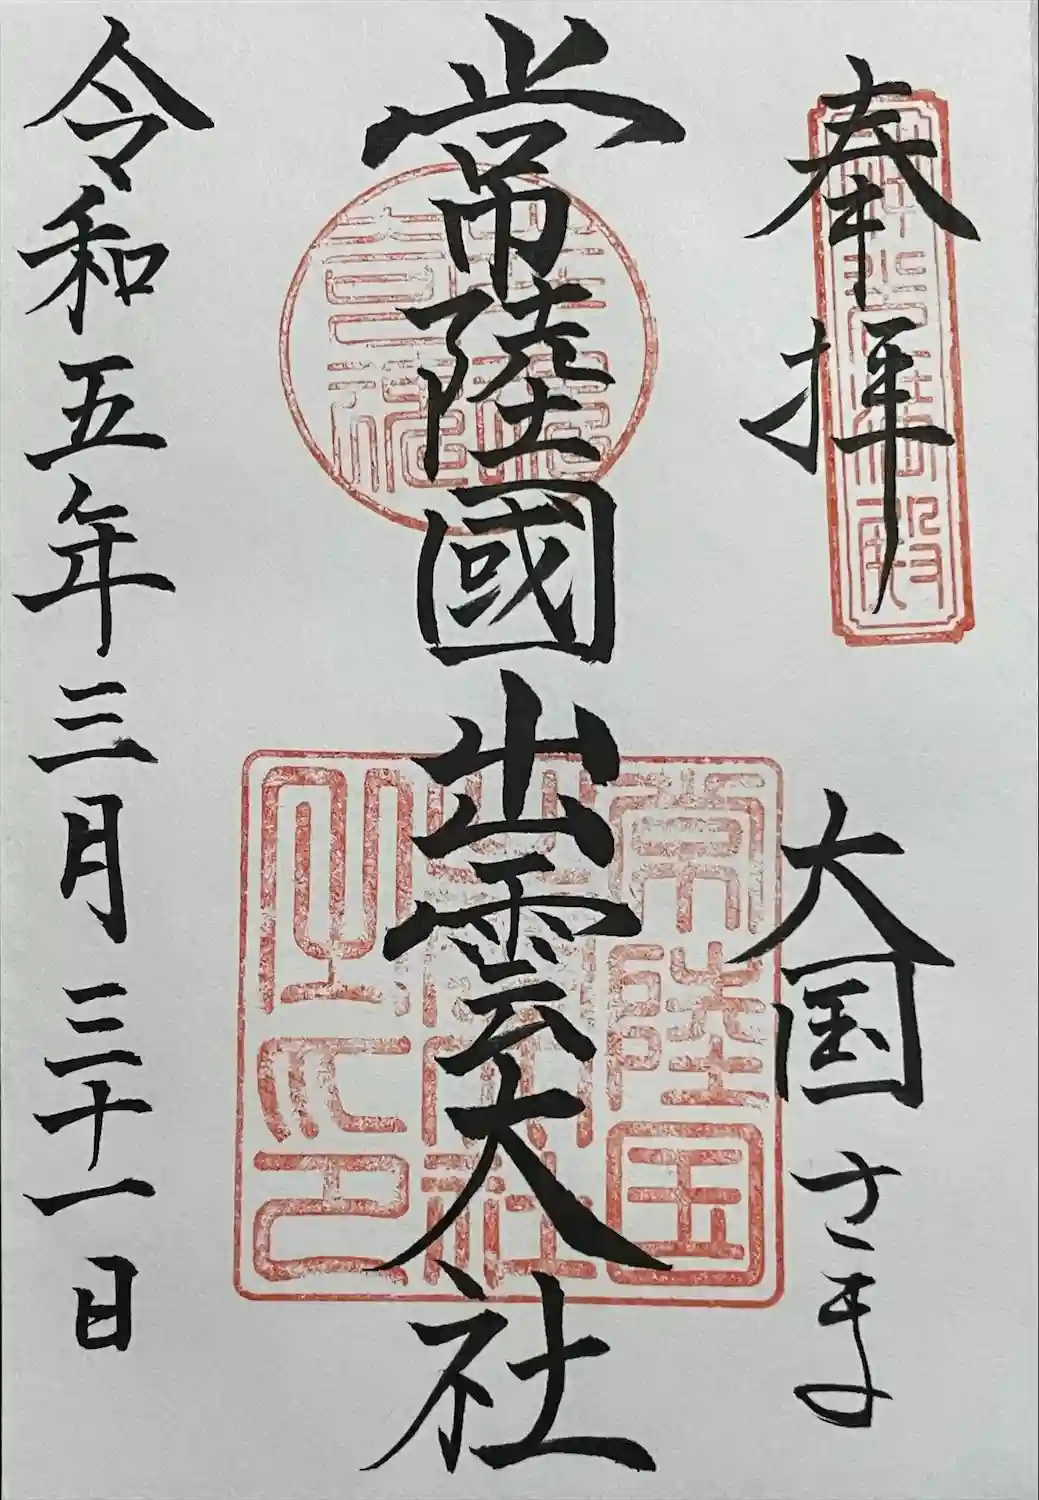 奉拝
大国さま
常陸國出雲大社
令和五年三月三十一日
常陸国